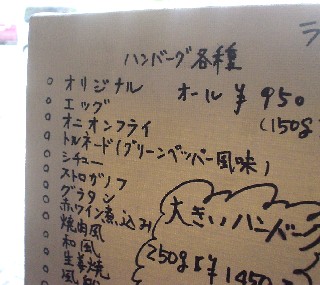 ハンバーグ各種
オリジナル オール ¥950
エッグ (150g
オニオンフライ
トルネード(グリーンペッパー風味)
シチュー
ストロガノフ
グラタン
赤ワイン煮込み
焼肉風
和風
生姜焼
大きいハンバーグ
250g ¥1450
ラ